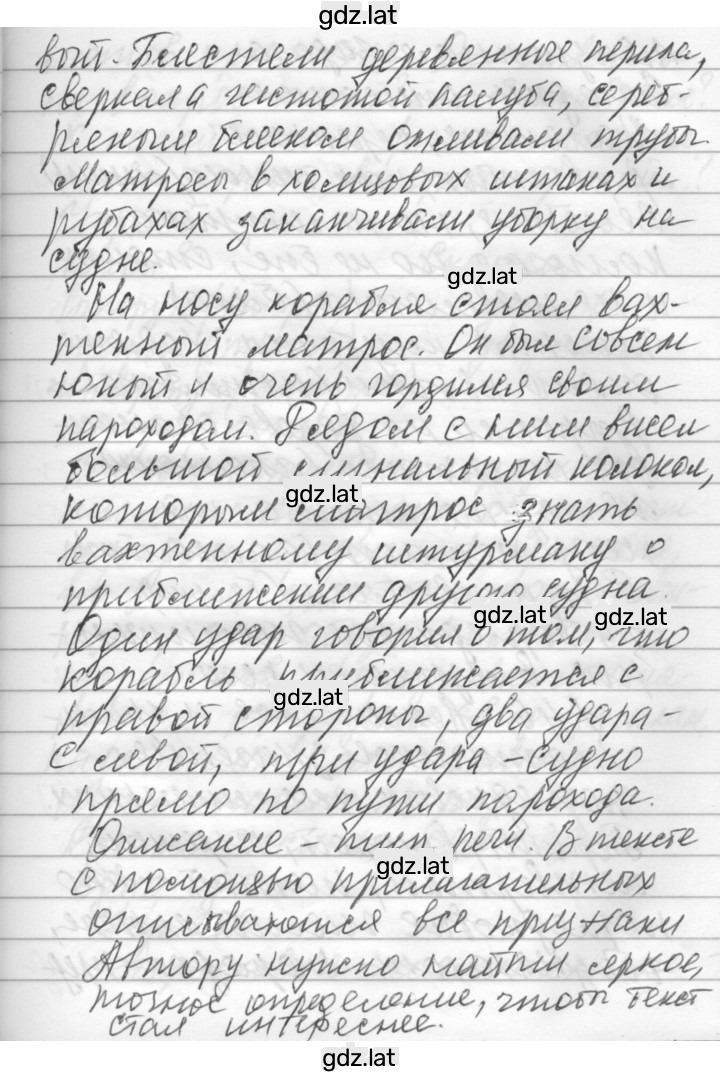 gdz.lat
вый. Блестели деревянные перила,
сверкала чистотой палуба, сереб-
ряным блеском отливали трубы.
Матросы в холщовых штанах и
рубахах заканчивали уборку на
судне.
gdz.lat
На носу корабля стоял вах-
тенный матрос. Он был совсем
юный и очень гордился своим
пароходом. Рядом с ним висел
большой сигнальный колокол,
gdz.lat
которым матрос знать
вахтенному штурману о
приближении другого судна.
gdz.lat
Один удар говорил о том, что
корабль приближается с
gdz.lat
правой стороны, два удара -
с левой, три удара - судно
прямо по пути парохода.
Описание - тип речи. В тексте
gdz.lat
с помощью прилагательных
описываются все признаки
Автору нужно найти яркое,
точное определение, чтобы текст
стал интереснее.
gdz.lat